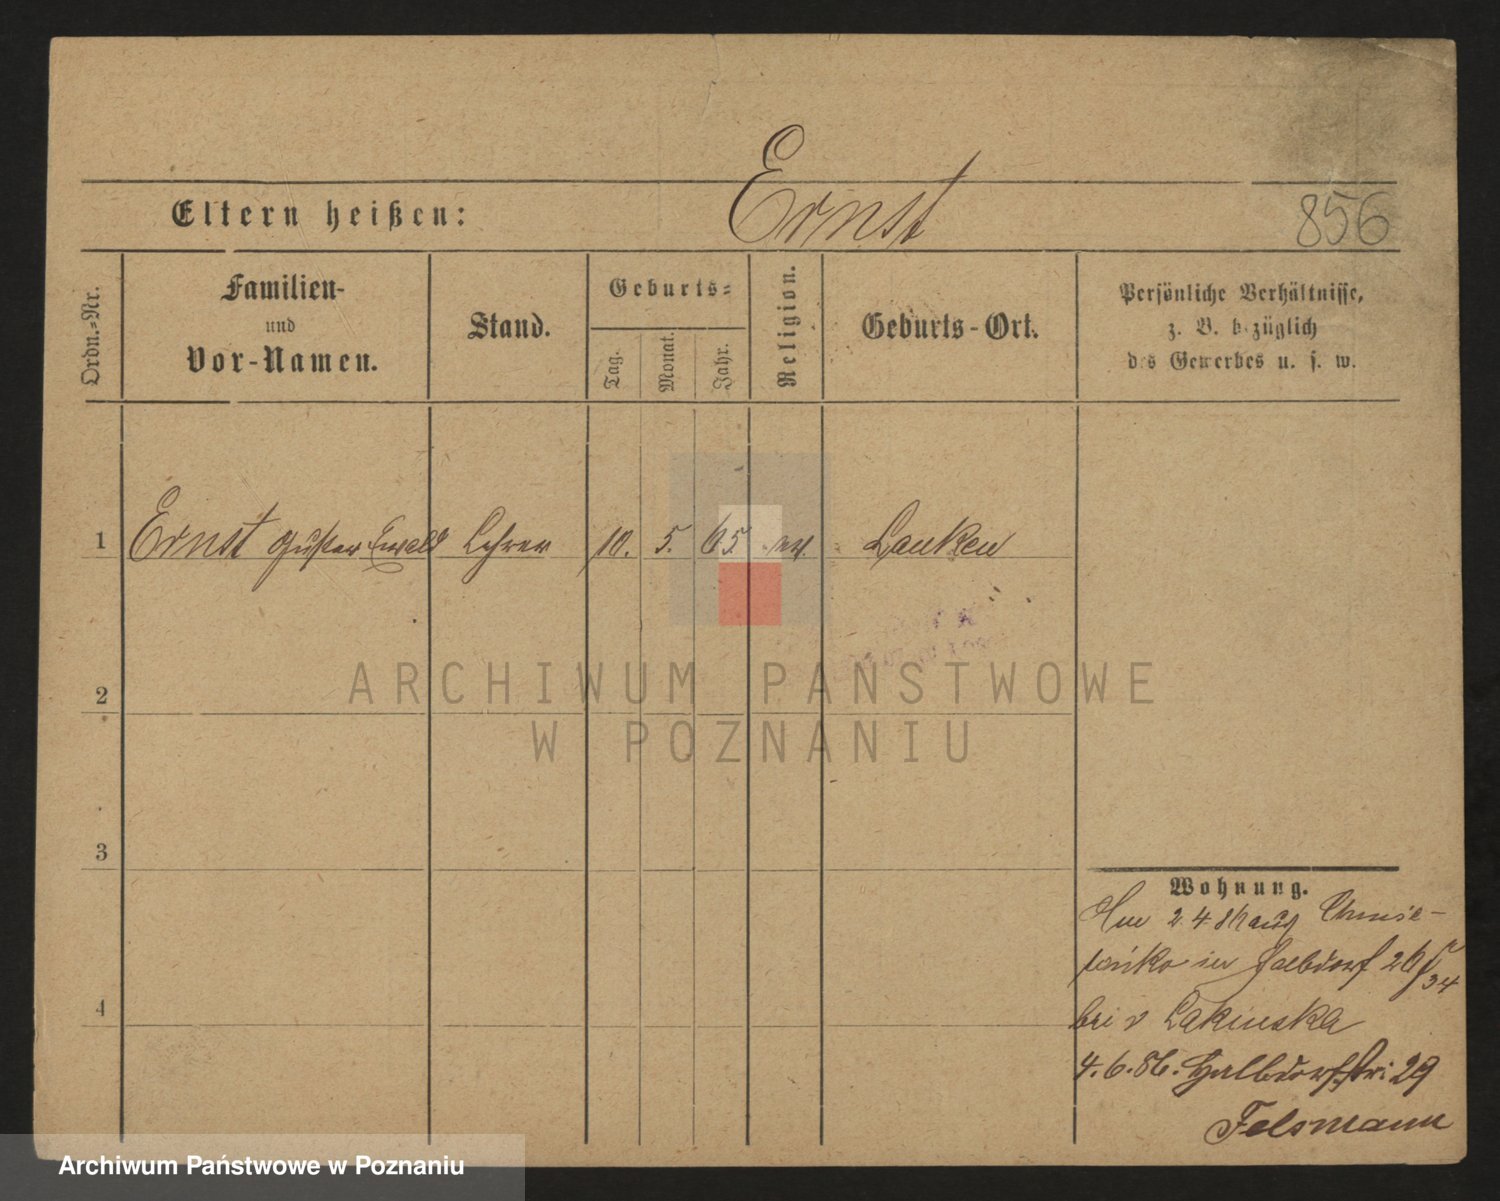 Ernst
Eltern heißen:
856
Ordn.=Nr.
Familien-
und
Vor-Namen.
Stand.
Geburts=
Tag.
Monat.
Jahr.
Religion.
Geburts-Ort.
Persönliche Verhältnisse,
z. B. bezüglich
des Gewerbes u. s. w.
1 Ernst Gustav Ewald Lehrer 10. 5. 65 ev. Lanken
2
3
4
ARCHIWUM PAŃSTWOWE
W POZNANIU
Wohnung.
2 4 86 aus
in Halbdorf 26
34
bei v Lakinska
4.6.86. Halbdorfstr: 29
Felsmann
Archiwum Państwowe w Poznaniu